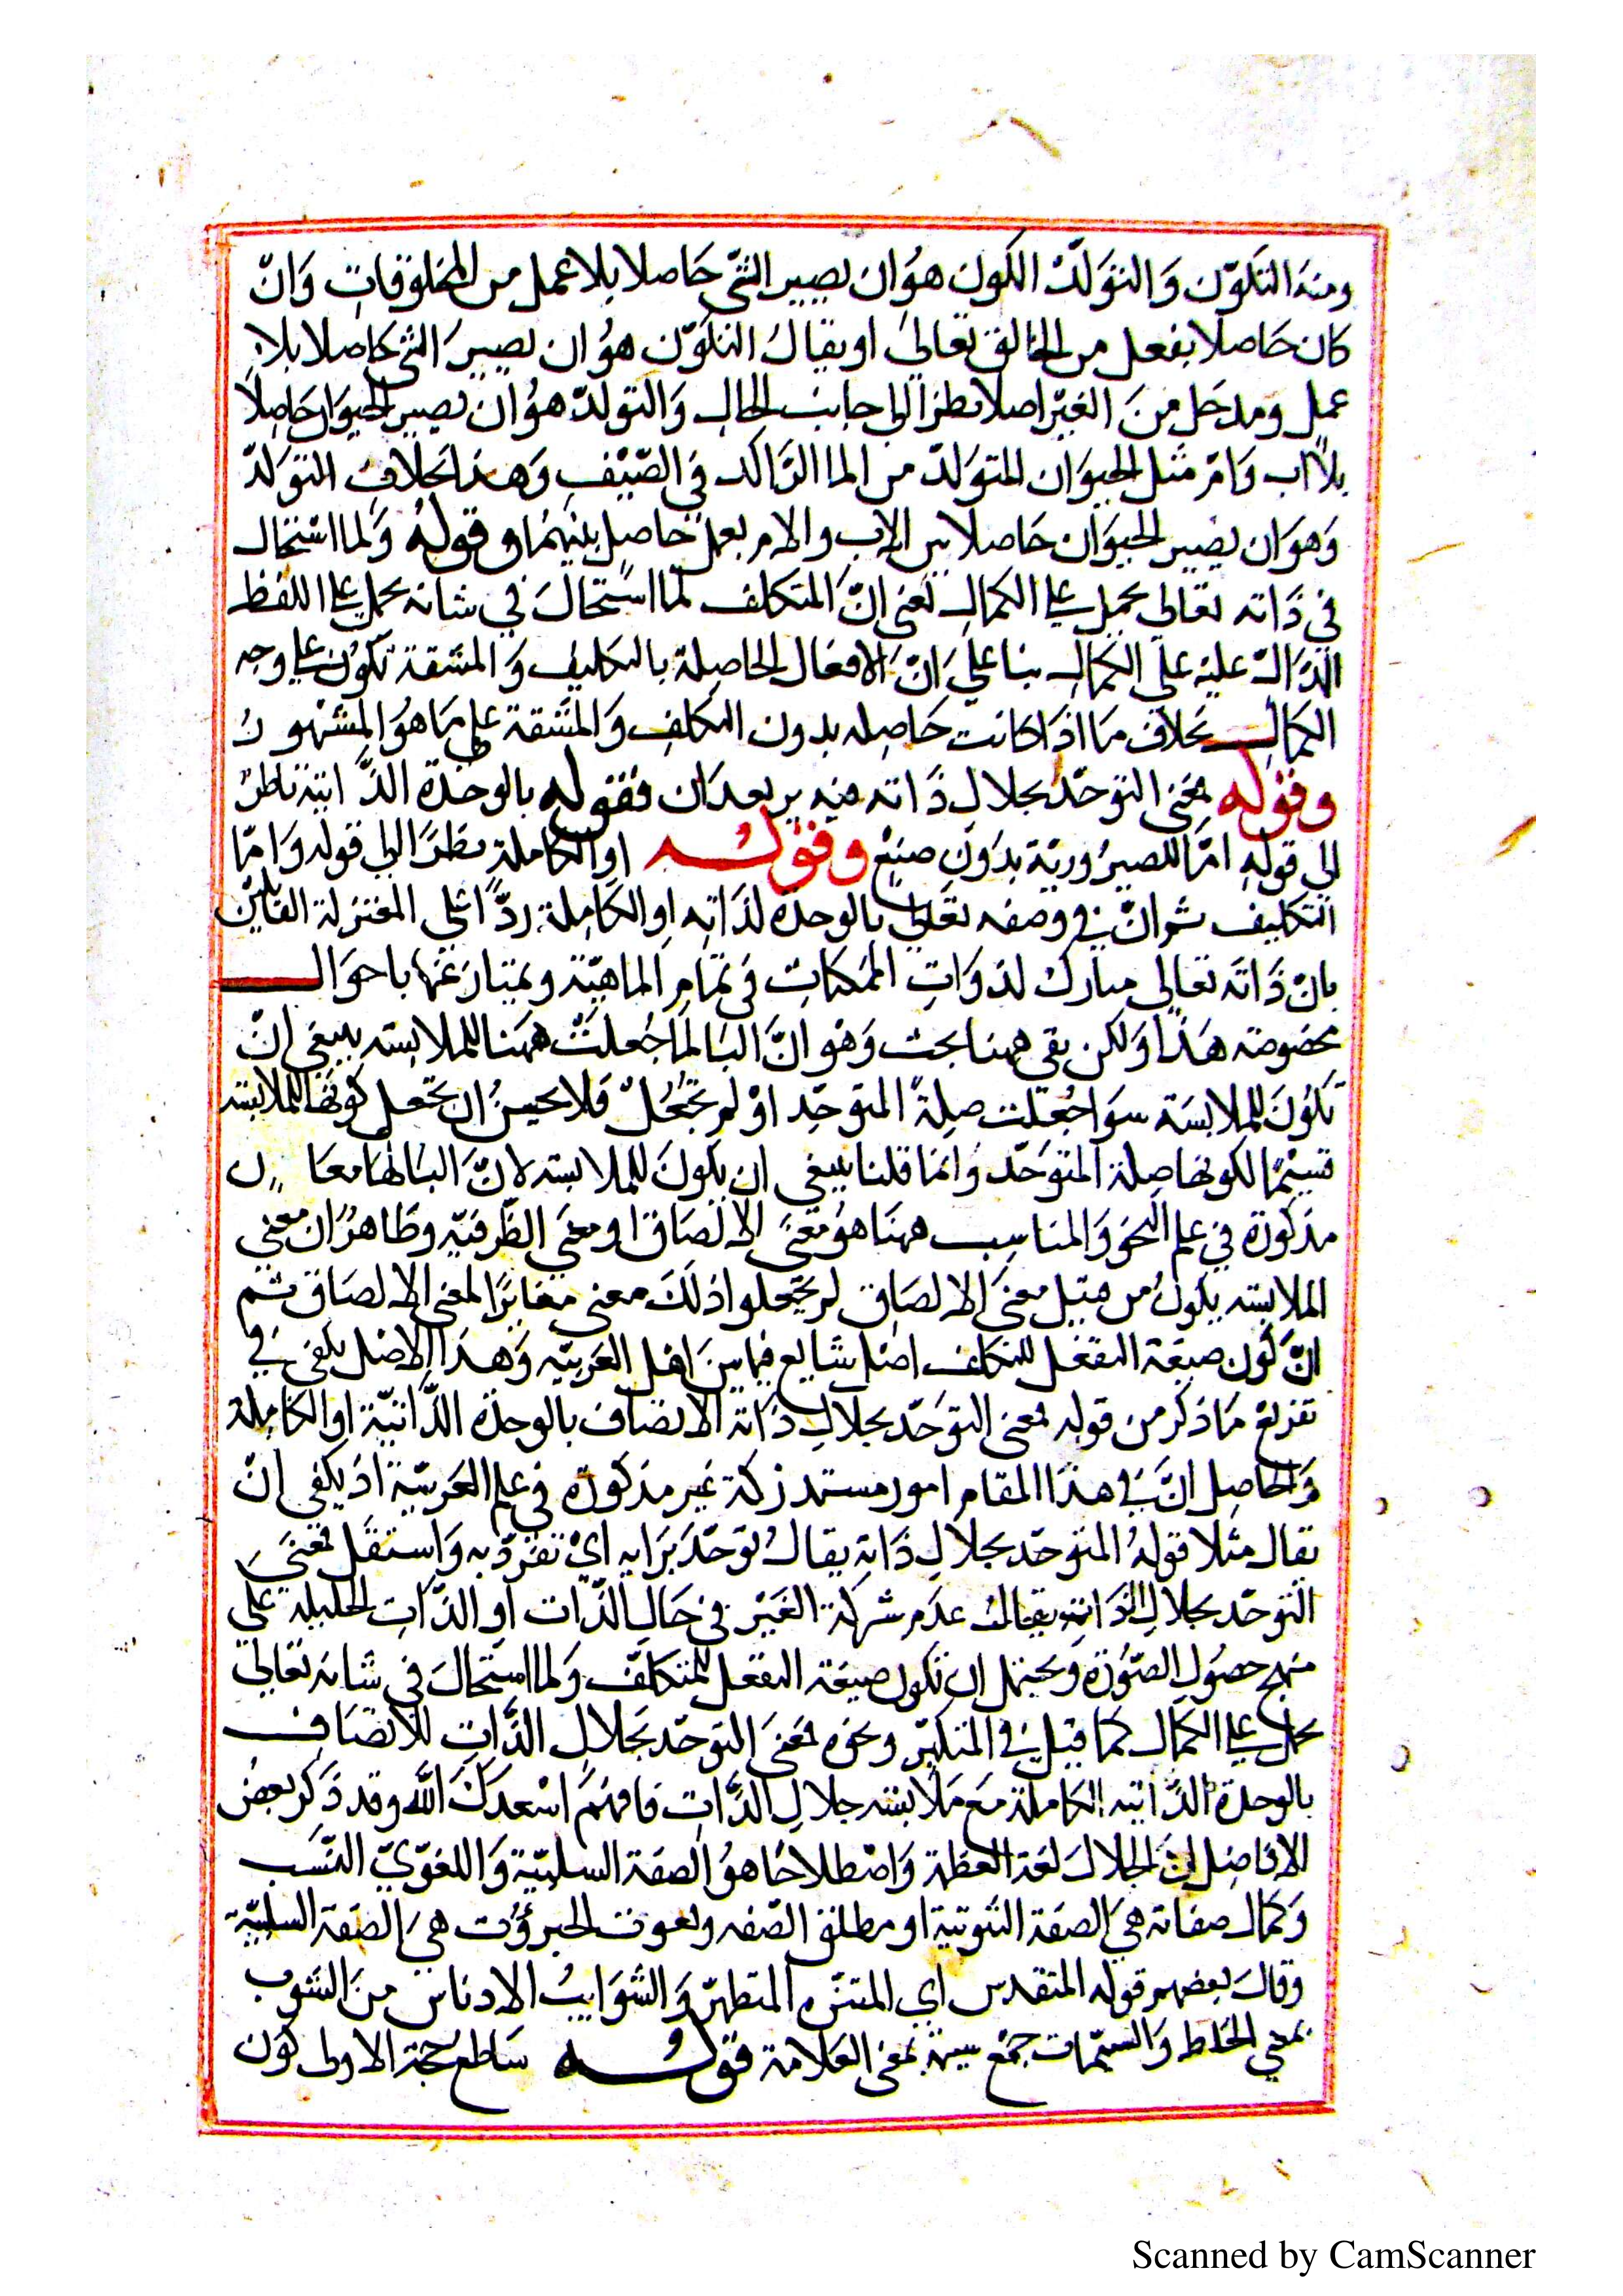 ومنه التكوّن وَالتوَلّد الكون هوَ ان يصير الشئ حَاصلا بلا عمل من المخلوقاتِ وَانّ
كان حَاصلا بفعل من الخالق تعالىَ او يقالُ التكوّن هوُ ان يصيرَ الشئ حَاصلا بلا
عمل ومدخل منَ الغيْر اصلا نظرا الى جانب الحالِ وَالتولدّ هوُ ان يصير الحيوَان حَاصِلاً
بلا اب وَامّ مثل الحيوَان المتوَلدّ من الما الرّاكد في الصّيْفِ وَهذا بخلافِ التوَلدّ
وَهوَ ان يصير الحيوَان حَاصلا من الاب والام بعمل حاصل بينهُمَا وقولهُ وَلما استحال
في ذَاته تعالى يحمل على الكمالِ يَعنى انّ المتكلف لما استحَالَ في شانه يحمل على اللفظ
الدّالّ عليْه على الكمالِ بنا علىَ انّ الافعال الحَاصِلة بالتكليفِ وَالمشقة تكوُن على وجه
الكمالِ بخلاف مَا اذَا كانت حَاصِله بدون التكلفِ وَالمشقة على مَا هوُ المشهورُ
وقوله بمعنى التوحّد بجلالِ ذَاته فيه بعدَان فقوله بالوحدَة الذّاتية ناظرٌ
الى قولهِ امّا للصيرُورية بدوَنِ صنع وقوله او الكاملة نظرًا الى قوله وَامّا
التكليف ثم انّ في وصفه تعَالى بالوحدَة لذَاتِه او الكَامِلة ردًّا على المعتزلة القايلين
بانّ ذَاته تعَالى مشارك لذوَاتِ الممكناتِ في تمَام الماهيّة ويمتاز عَنها باحوَالِ
مخصُوصَة هَذا وَلكن بقى ههنا بحث وَهوَ انَّ البَا لما جُعلتْ ههنا للملابسَه ينبغى انّ
تكوُنَ للملابسَة سوَا جُعَلت صِلةً المتوَحّد اوْ لم تجْعَلْ فَلا يحسنُ ان يجَعل كونهَا للملابسَه
قسيْمًا لكونها صِلة المتوَحّد وَانما قلنا ينبغى ان يكونَ للملابسَه لانّ البَا لهَا معَان
مذكورَة في علم النحوَ وَالمناسِب ههنا هوُ معْنَى الالصَاق او معنىَ الظّرفيّه وظَاهرٌ ان معنى
الملابسَه يكونُ من قبيل معنىَ الالصَاقِ لم يجَعلوا ذلكَ معنى مغايرًا لمعنى الالصَاق ثم
انّ كون صيغة التفعّل للتكلف اصْل شايع فيما بينَ اهْل العَربيّه وَهَذا الاصْل يكفى في
تفريع مَا ذكر من قوله بمعنى التوَحّد بجلالِ ذَاته الاتصَاف بالوحدَة الذّاتيّة او الكَامِلة
وَالحَاصِل انَّ في هذَا المقام امور مستدركة غير مذكورَة في علم العَربيّة اذ يكفى انّ
يقال مثلا قولهُ المتوحّد بجلالِ ذَاتهِ يقالُ توَحّدَ برَايه ايْ تفرّد به وَاستقل بمعنىَ
التوحّد بجلالِ الذّات يقالُ عدَم شركة الغيْر في جَلالِ الذّات او الذّاتِ الجليلة على
منهج حصُول الصّورَة وَيحتمل ان تكون صيغة التفعّل للمتكلف وَلما استحَالَ في شانه تعَالى
يحمل على الكمال كمَا قيل في المتكبّر وَنحوَه بمعنىَ التوحّد بجَلالِ الذَّات للاتصَافِ
بالوحدَة الذّاتيه الكَاملة مَع مَلابسَه جلالِ الذّاتِ فافهَمْ اسْعدَكَ الله وقد ذَكر بعضُ
الافاضِل انّ الجلالَ لغة العظمة وَاصْطلاحًا هوُ الصفة السلبيّة وَاللغوّيّ انسَب
وَكمَال صفاته هيَ الصفة الثبوتية او مطلق الصّفه ونعوت الجبرؤت هيَ الصّفة السلبيّة
وقالَ بعضهم قوله المتقدس اي المتنزّه المتطهّر وَالشّوَايبُ الادناس منَ الشوب
بمعنى الخلط وَالسّمات جمْع سمة بمعنى العَلامة قولهُ سَاطع حُججَه الاولى كون
Scanned by CamScanner